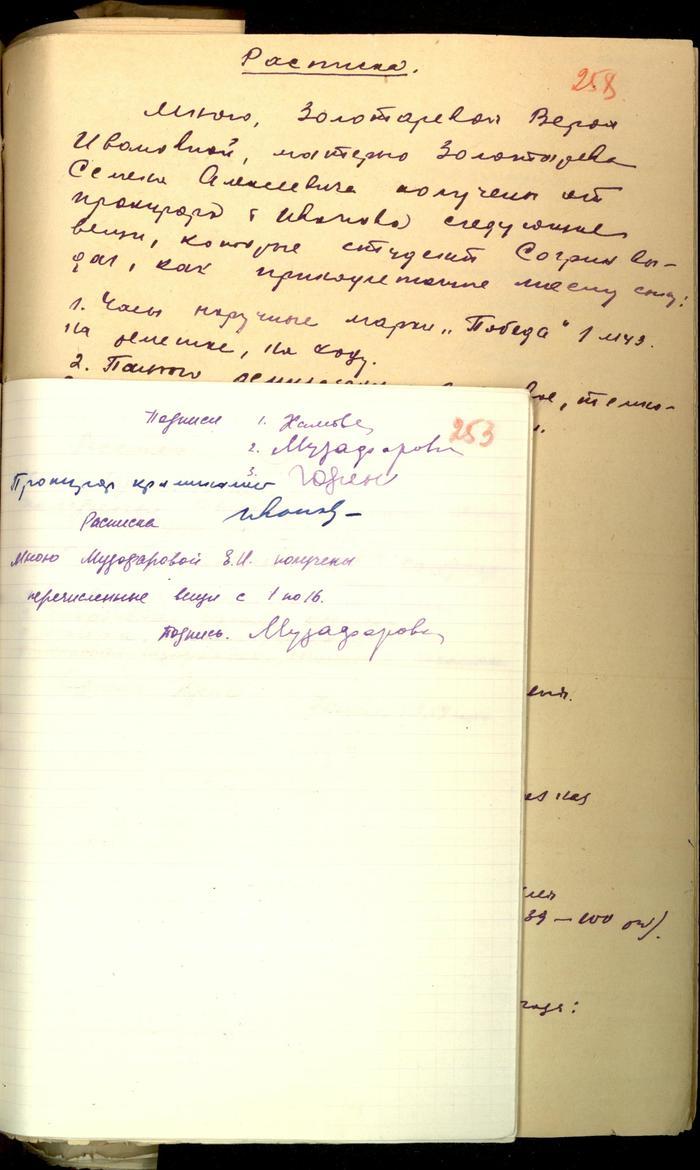 Расписка.
258
Мною, Золотаревой Верой
Ивановной, матерью Золотарева
Семена Алексеевича получены от
прокурора т Иванова следующие
вещи, которые студент Согрин вы-
дал, как принадлежащие моему сыну:
1. Часы наручные марки „Победа" 1 мчз.
на ремешке, на ходу.
2.
тёмно-
253
Подписи 1.
2. Музафарова
3.
Прокурор криминалист
Расписка Иванов
Мною Музафаровой З.И. получены
перечисленные вещи с 1 по 16.
Подпись. Музафарова
39 – 100 )